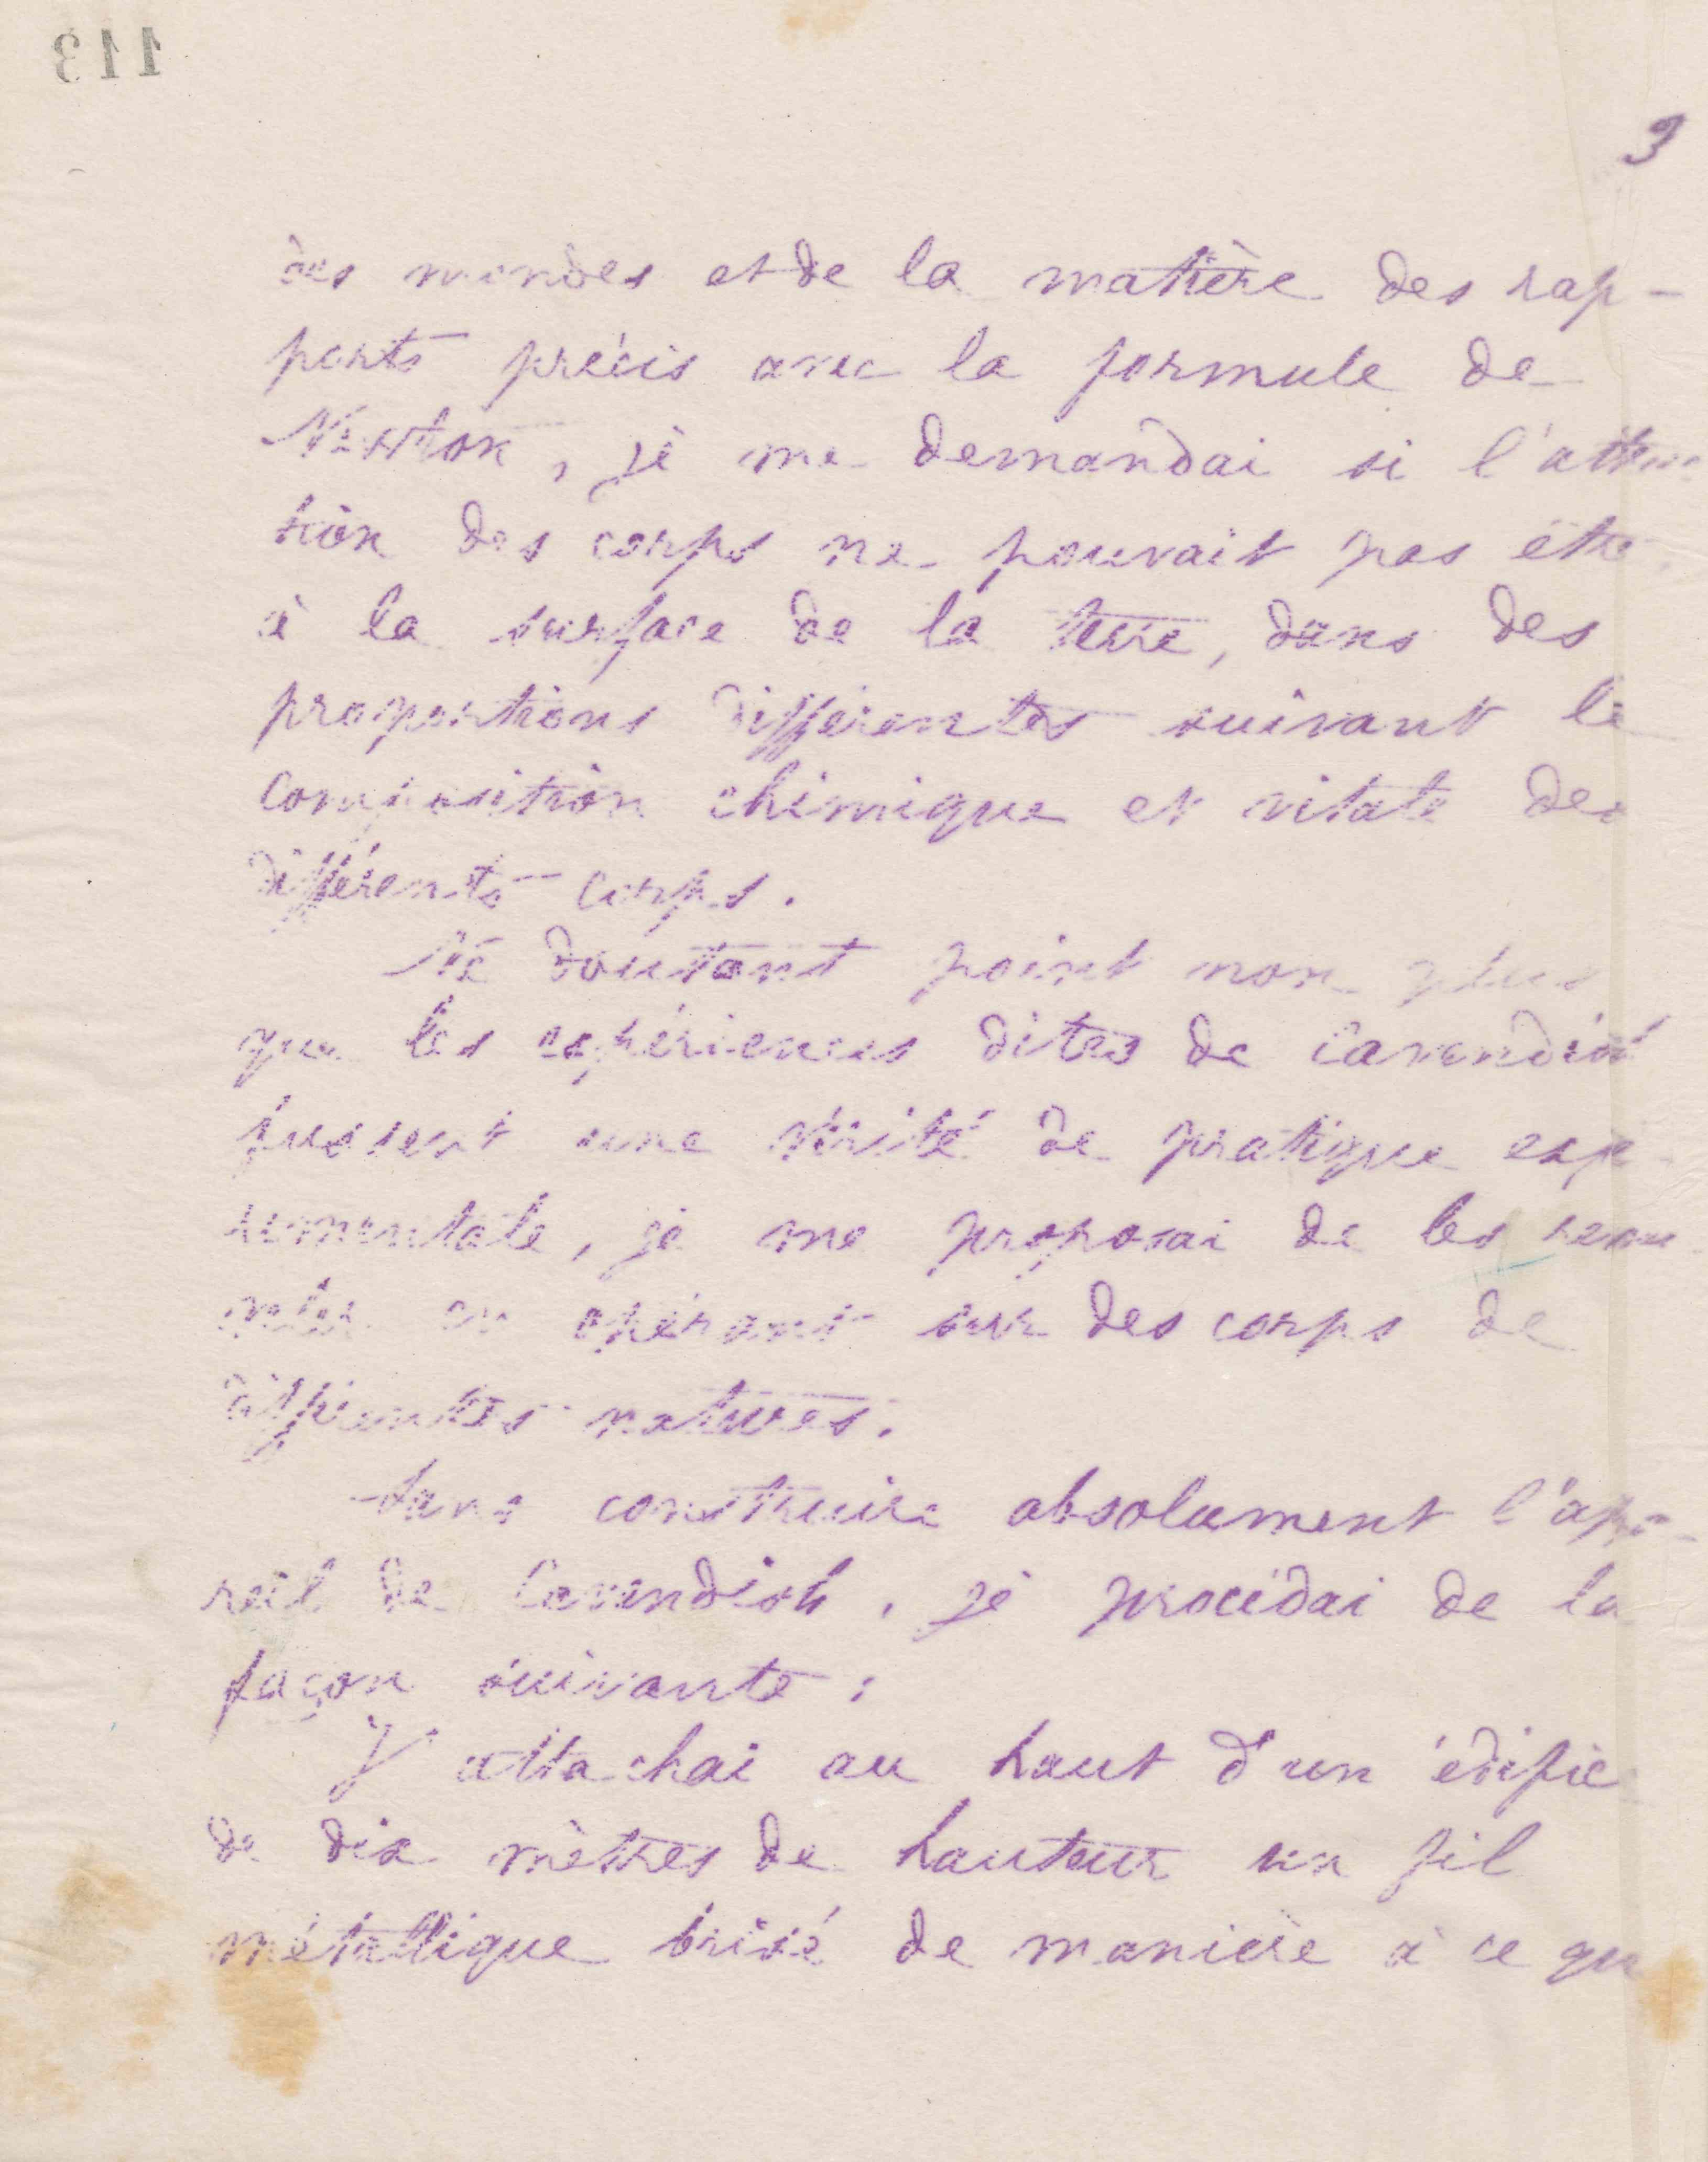 113
3
des mondes et de la matière des rap-
ports précis avec la formule de
Newton, je me demandai si l'attrac
tion des corps ne pouvait pas être
à la surface de la terre, dans des
proportions différentes suivant la
composition chimique et vitale des
différents corps.
Ne doutant point non plus
que les expériences dites de Cavendish
fussent une vérité de pratique expé
rimentale, je me proposai de les renou
veler en opérant sur des corps de
différentes natures.
Sans construire absolument l'appa-
reil de Cavendish, je procédai de la
façon suivante :
J'attachai au haut d'un édifice
de dix mètres de hauteur un fil
métallique brisé de manière à ce qu